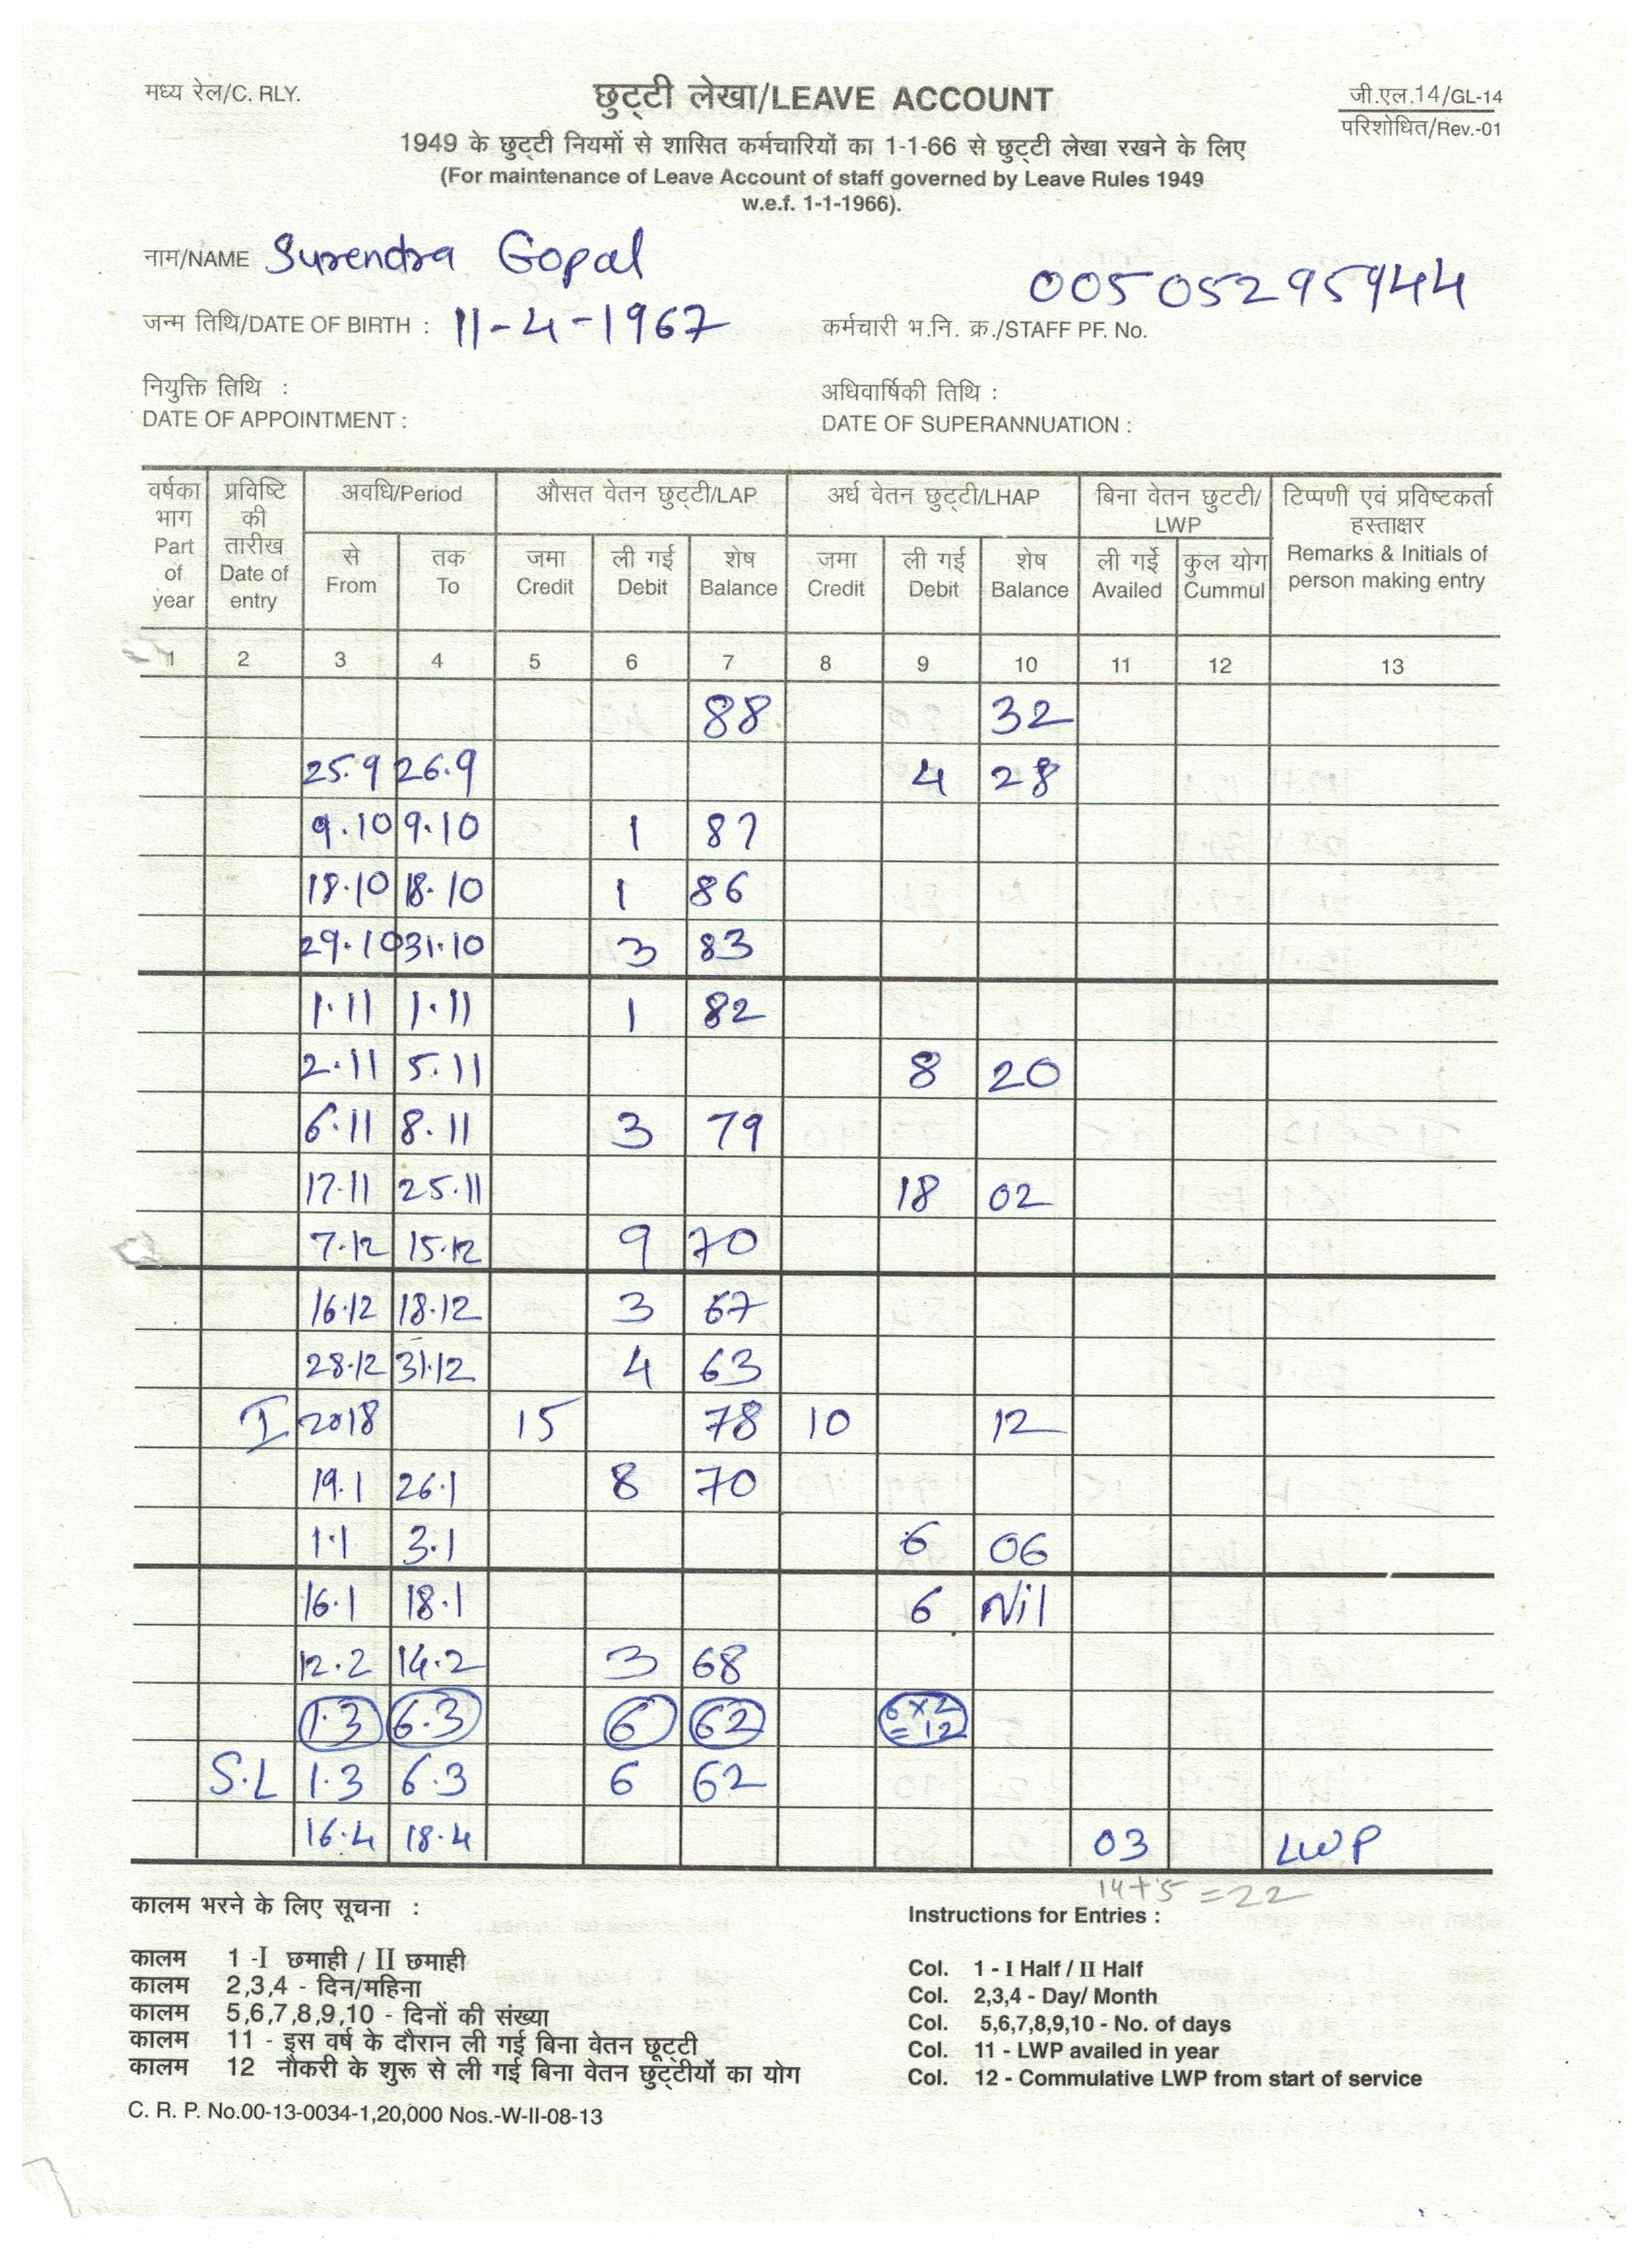 मध्य रेल/C. RLY.
छुट्टी लेखा/LEAVE ACCOUNT
जी.एल.14/GL-14
परिशोधित/Rev.-01
1949 के छुट्टी नियमों से शासित कर्मचारियों का 1-1-66 से छुट्टी लेखा रखने के लिए
(For maintenance of Leave Account of staff governed by Leave Rules 1949
w.e.f. 1-1-1966).
नाम/NAME Surendra Gopal
00505295944
जन्म तिथि/DATE OF BIRTH : 11-4-1967
कर्मचारी भ.नि. क्र./STAFF PF. No.
नियुक्ति तिथि :
DATE OF APPOINTMENT :
अधिवार्षिकी तिथि :
DATE OF SUPERANNUATION :
वर्षका भाग Part of year
प्रविष्टि की तारीख Date of entry
अवधि/Period
औसत वेतन छुट्टी/LAP
अर्ध वेतन छुट्टी/LHAP
बिना वेतन छुटटी/ LWP
टिप्पणी एवं प्रविष्टकर्ता हस्ताक्षर Remarks & Initials of person making entry
से From
तक To
जमा Credit
ली गई Debit
शेष Balance
जमा Credit
ली गई Debit
शेष Balance
ली गईे Availed
कुल योग Cummul
1 2 3 4 5 6 7 8 9 10 11 12 13
88 32
25.9 26.9 4 28
9.10 9.10 1 87
18.10 18.10 1 86
29.10 31.10 3 83
1.11 1.11 1 82
2.11 5.11 8 20
6.11 8.11 3 79
17.11 25.11 18 02
7.12 15.12 9 70
16.12 18.12 3 67
28.12 31.12 4 63
I 2018 15 78 10 12
19.1 26.1 8 70
1.1 3.1 6 06
16.1 18.1 6 Nil
12.2 14.2 3 68
1.3 6.3 6 62 6×2 =12
S.L 1.3 6.3 6 62
16.4 18.4 03 LWP
14+5 =22
कालम भरने के लिए सूचना :
कालम 1 -I छमाही / II छमाही
कालम 2,3,4 - दिन/महिना
कालम 5,6,7,8,9,10 - दिनों की संख्या
कालम 11 - इस वर्ष के दौरान ली गई बिना वेतन छूट्टी
कालम 12 नौकरी के शुरू से ली गई बिना वेतन छुट्टीयों का योग
Instructions for Entries :
Col. 1 - I Half / II Half
Col. 2,3,4 - Day/ Month
Col. 5,6,7,8,9,10 - No. of days
Col. 11 - LWP availed in year
Col. 12 - Commulative LWP from start of service
C. R. P. No.00-13-0034-1,20,000 Nos.-W-II-08-13